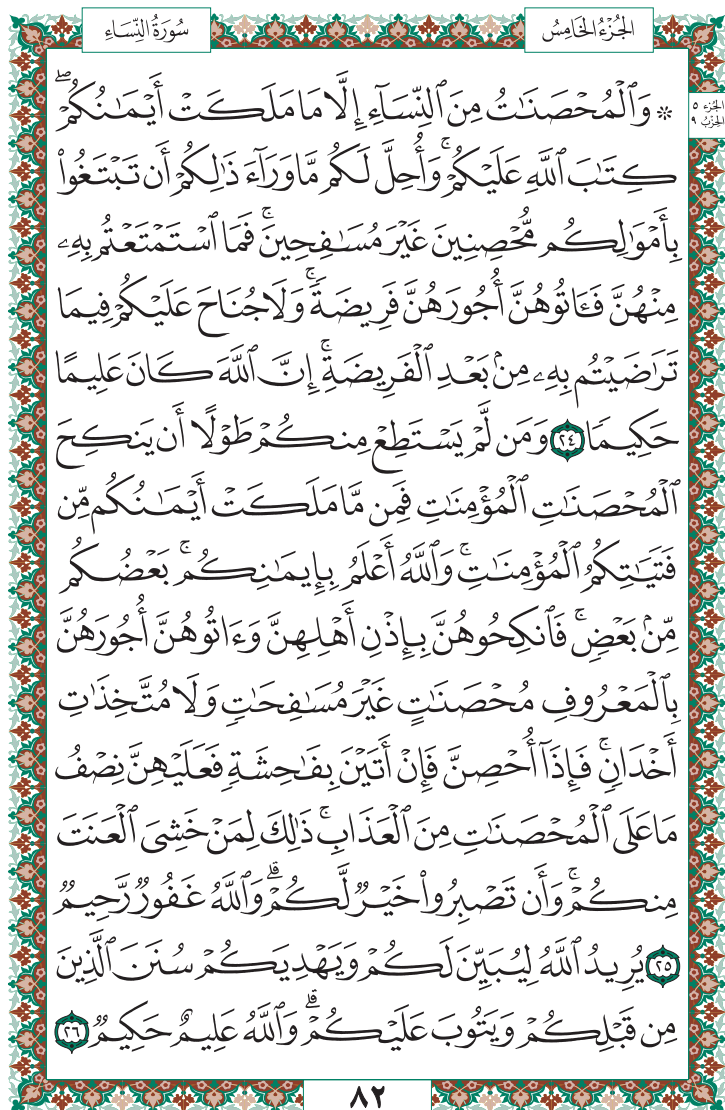 سُورَةُ النِّسَاءِ
الجُزْءُ الخَامِسُ
الجزء ٥
الحزب ٩
۞ وَٱلْمُحْصَنَٰتُ مِنَ ٱلنِّسَآءِ إِلَّا مَا مَلَكَتْ أَيْمَٰنُكُمْۖ
كِتَٰبَ ٱللَّهِ عَلَيْكُمْۚ وَأُحِلَّ لَكُم مَّا وَرَآءَ ذَٰلِكُمْ أَن تَبْتَغُوا۟
بِأَمْوَٰلِكُم مُّحْصِنِينَ غَيْرَ مُسَٰفِحِينَۚ فَمَا ٱسْتَمْتَعْتُم بِهِۦ
مِنْهُنَّ فَـَٔاتُوهُنَّ أُجُورَهُنَّ فَرِيضَةًۚ وَلَا جُنَاحَ عَلَيْكُمْ فِيمَا
تَرَٰضَيْتُم بِهِۦ مِنۢ بَعْدِ ٱلْفَرِيضَةِۚ إِنَّ ٱللَّهَ كَانَ عَلِيمًا
حَكِيمًا ٢٤ وَمَن لَّمْ يَسْتَطِعْ مِنكُمْ طَوْلًا أَن يَنكِحَ
ٱلْمُحْصَنَٰتِ ٱلْمُؤْمِنَٰتِ فَمِن مَّا مَلَكَتْ أَيْمَٰنُكُم مِّن
فَتَيَٰتِكُمُ ٱلْمُؤْمِنَٰتِۚ وَٱللَّهُ أَعْلَمُ بِإِيمَٰنِكُمۚ بَعْضُكُم
مِّنۢ بَعْضٍۚ فَٱنكِحُوهُنَّ بِإِذْنِ أَهْلِهِنَّ وَءَاتُوهُنَّ أُجُورَهُنَّ
بِٱلْمَعْرُوفِ مُحْصَنَٰتٍ غَيْرَ مُسَٰفِحَٰتٍ وَلَا مُتَّخِذَٰتِ
أَخْدَانٍۚ فَإِذَآ أُحْصِنَّ فَإِنْ أَتَيْنَ بِفَٰحِشَةٍ فَعَلَيْهِنَّ نِصْفُ
مَا عَلَى ٱلْمُحْصَنَٰتِ مِنَ ٱلْعَذَابِۚ ذَٰلِكَ لِمَنْ خَشِىَ ٱلْعَنَتَ
مِنكُمْۚ وَأَن تَصْبِرُوا۟ خَيْرٌ لَّكُمْۗ وَٱللَّهُ غَفُورٌ رَّحِيمٌ
٢٥ يُرِيدُ ٱللَّهُ لِيُبَيِّنَ لَكُمْ وَيَهْدِيَكُمْ سُنَنَ ٱلَّذِينَ
مِن قَبْلِكُمْ وَيَتُوبَ عَلَيْكُمْۗ وَٱللَّهُ عَلِيمٌ حَكِيمٌ ٢٦
٨٢